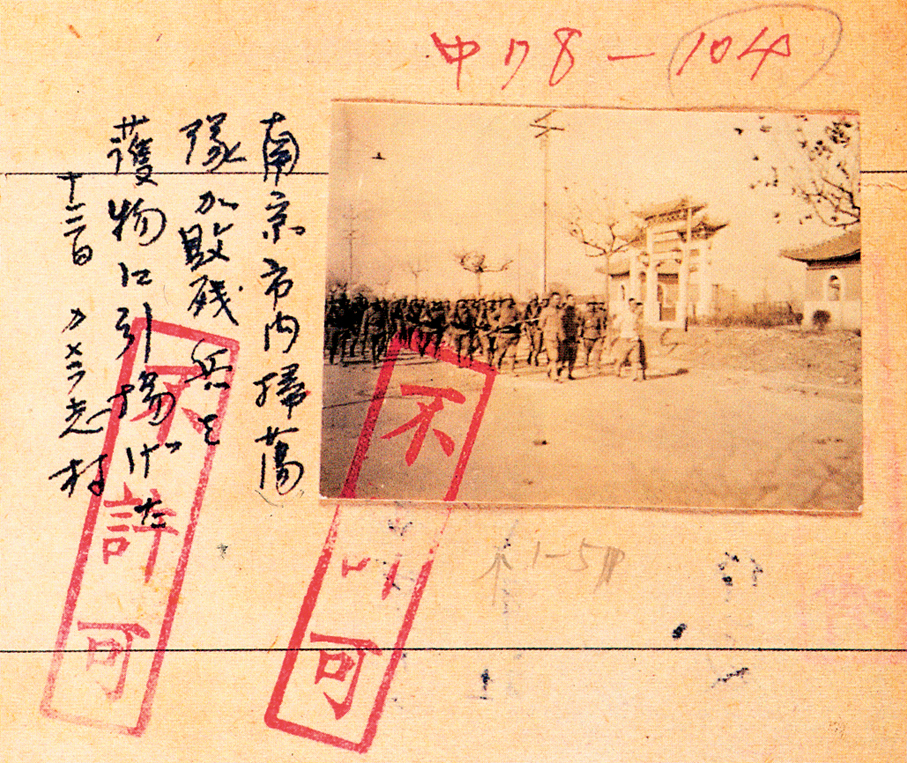 中178-104
南京市内掃蕩
隊が敗残兵と
護物に引揚げた
十二日 カメラ志村
不許可
不許可